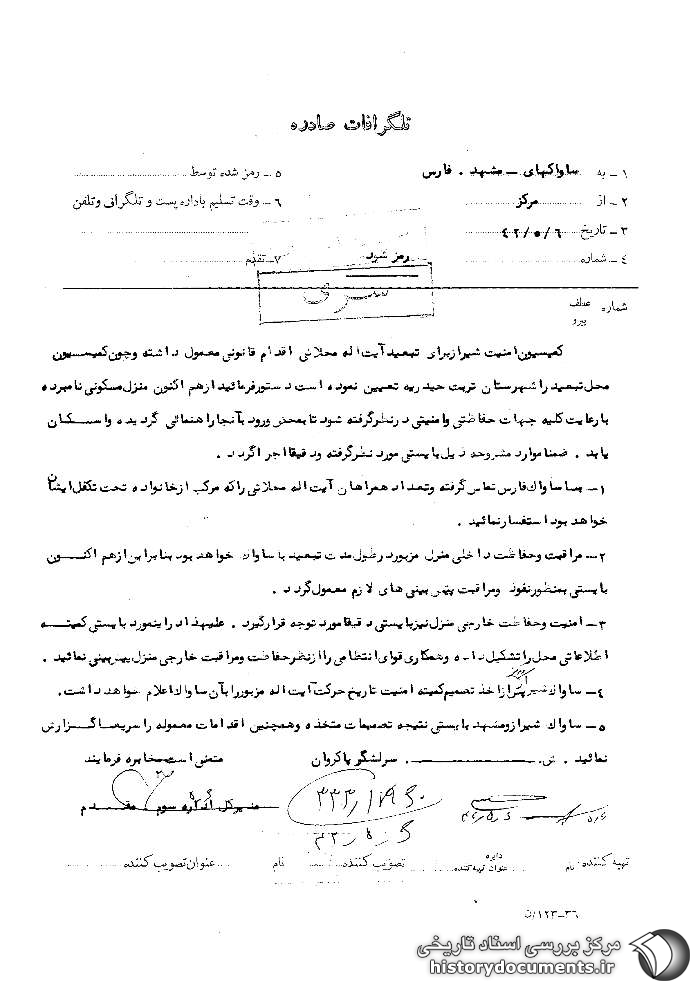 تلگرافات صادره
۱ــ به ساواکهای ــ مشهد . فارس
۵ــ رمز شده توسط
۲ــ از مرکز
۶ــ وقت تسلیم باداره پست و تلگرافی وتلفن
۳ــ تاریخ ۴۲/۵/۶
۴ــ شماره رمز شود
۷ــ تقدم
سری
شماره عطف
پیرو
کمیسیون امنیت شیراز برای تبعید آیت اله محلاتی اقدام قانونی معمول داشته وچون کمیسیون
محل تبعید را شهرستان تربت حیدریه تعیین نموده است دستور فرمائید از هم اکنون منزل مسکونی نامبرده
با رعایت کلیه جهات حفاظتی وامنیتی در نظر گرفته شود تا بمحض ورود بآنجا راهنمائی گردیده واسکان
یابد . ضمنا موارد مشروحه ذیل بایستی مورد نظر گرفته ودقیقا اجرا گردد .
۱ــ با ساواك فارس تماس گرفته وتعداد همراهان آیت اله محلاتی راکه مرکب از خانواده تحت تکفل ایشان
خواهد بود استفسار نمائید .
۲ــ مراقبت وحفاظت داخلی منزل مزبور در طول مدت تبعید با ساواك خواهد بود بنابراین از هم اکنون
بایستی بمنظور نفوذ ومراقبت پیش بینی های لازم معمول گردد .
۳ــ امنیت وحفاظت خارجی منزل نیز بایستی دقیقا مورد توجه قرار گیرد . علیهذا در اینمورد بایستی کمیته
اطلاعاتی محل را تشکیل داده وهمکاری قوای انتظامی را از نظر حفاظت ومراقبت خارجی منزل پیش بینی نمائید .
۴ــ ساواك شیراز پس از اخذ تصمیم کمیته امنیت تاریخ حرکت آیت اله مزبور را بآن ساواك اعلام خواهد داشت .
۵ــ ساواك شیراز ومشهد بایستی نتیجه تصمیمات متخذه وهمچنین اقدامات معموله را سریعا گزارش
نمائید . ش. سرلشگر پاکروان
متمنی است مخابره فرمایند
مدیرکل اداره سوم . مقدم
۳۳۳/۱۷۹۶۰
۴۲/۵/۶
تهیه کننده نام
دایره
عنوان تهیه کننده
تصویب کننده
نام
عنوان تصویب کننده
۳۶ــ۱۲۳/ت
مرکز بررسی اسناد تاریخی
historydocuments.ir